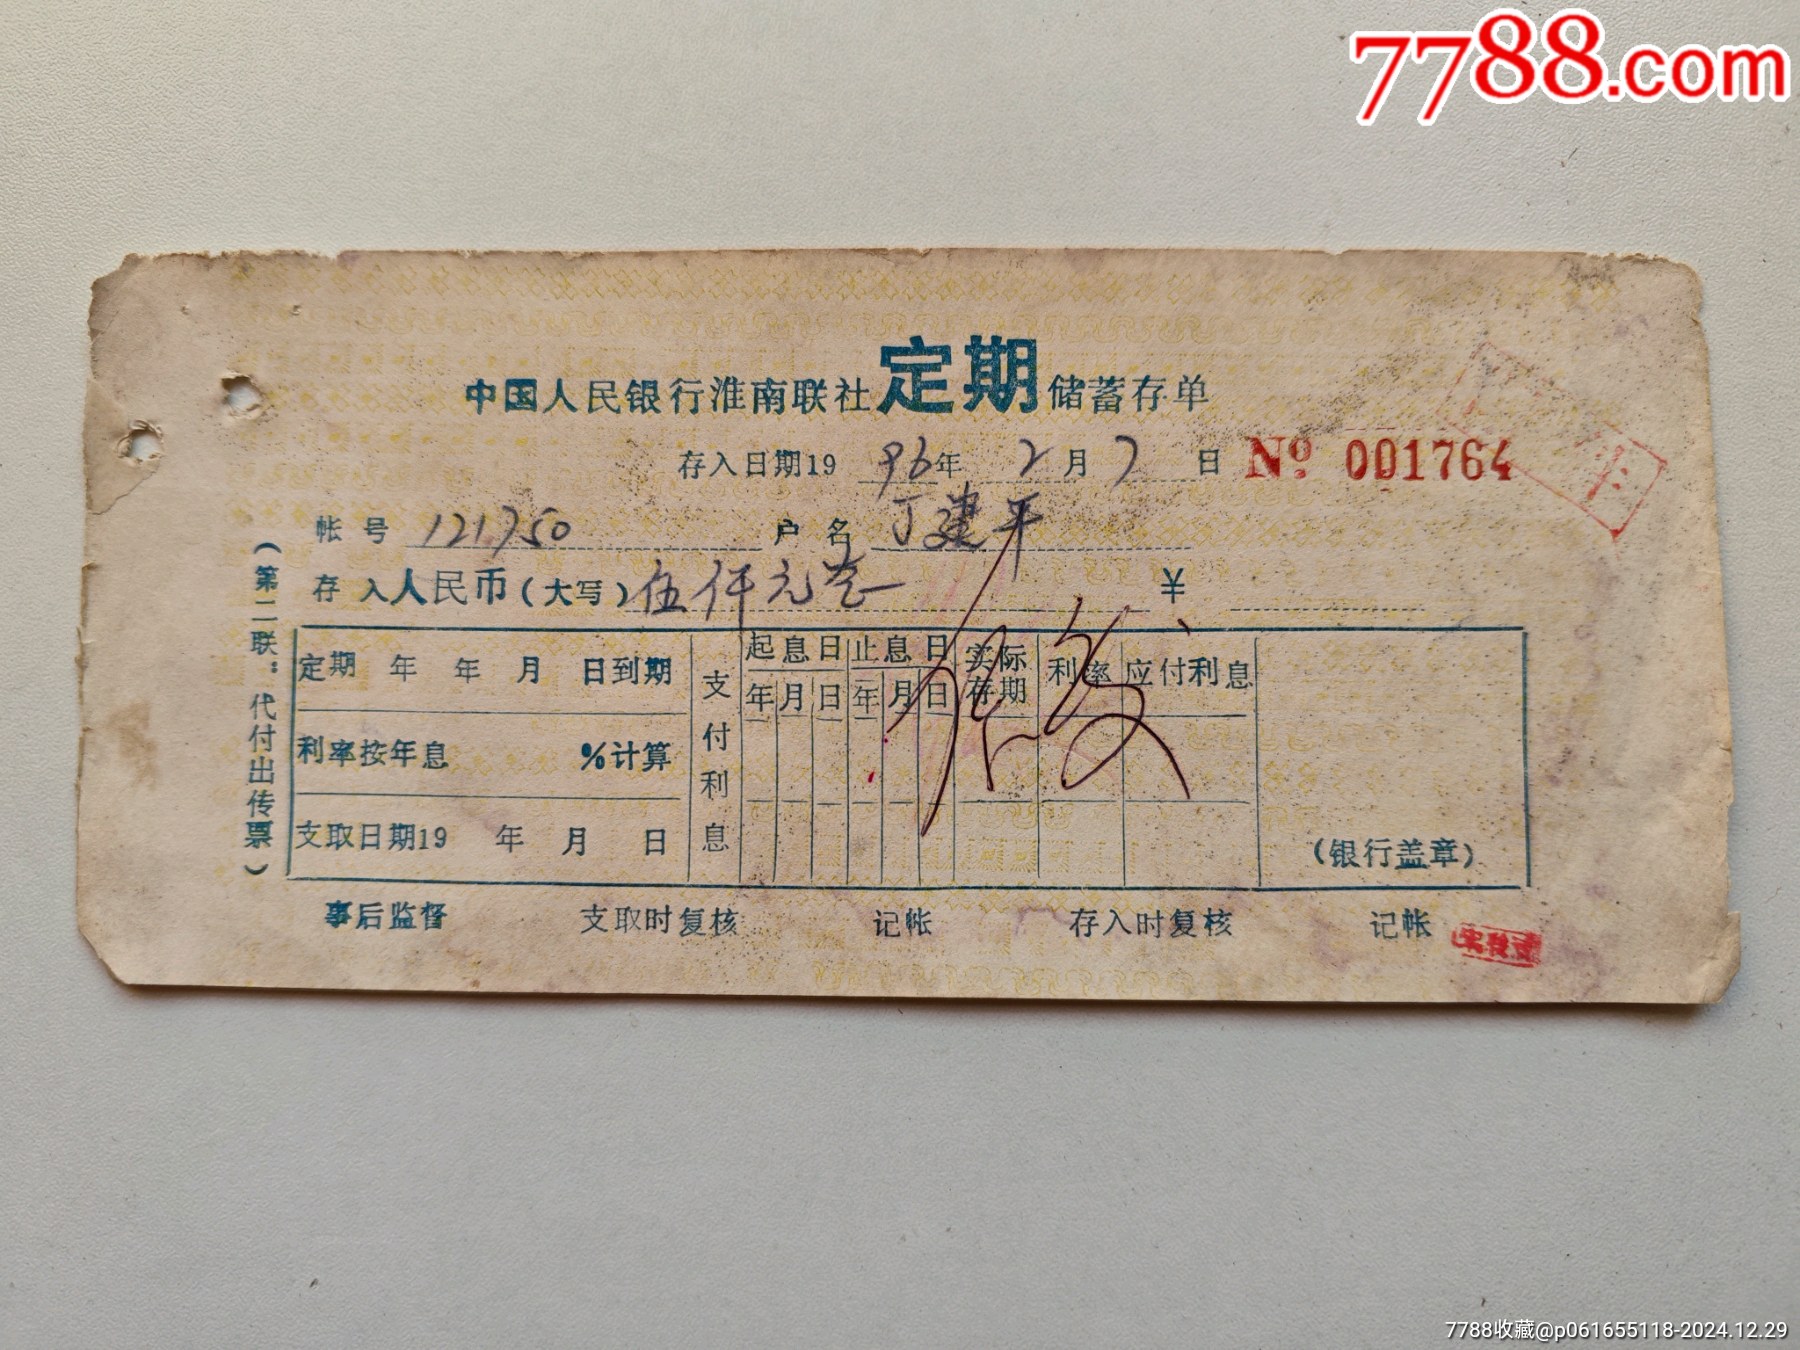 7788.com
中国人民银行淮南联社定期储蓄存单
存入日期19 96年 2月 7日 Nº 001764
帐号 121750 户名 丁建平
存入人民币(大写) 伍仟元 ¥
(第二联：代付出传票)
定期 年 年 月 日到期
利率按年息 %计算
支取日期19 年 月 日
支付利息
起息日 止息日 实际存期 利率 应付利息
年 月 日 年 月 日
作废
(银行盖章)
事后监督 支取时复核 记帐 存入时复核 记帐
7788收藏@p061655118-2024.12.29